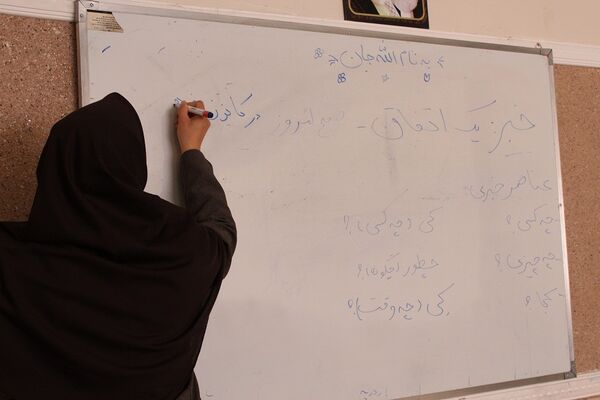 به نام الله جان
خبر: یک اتفاق - صبح امروز در کانون
عناصر خبری:
- چه کسی؟ کی (چه کسی)؟
- چه چیزی؟ چطور (چگونه)؟
- کجا؟ کی (چه وقت)؟